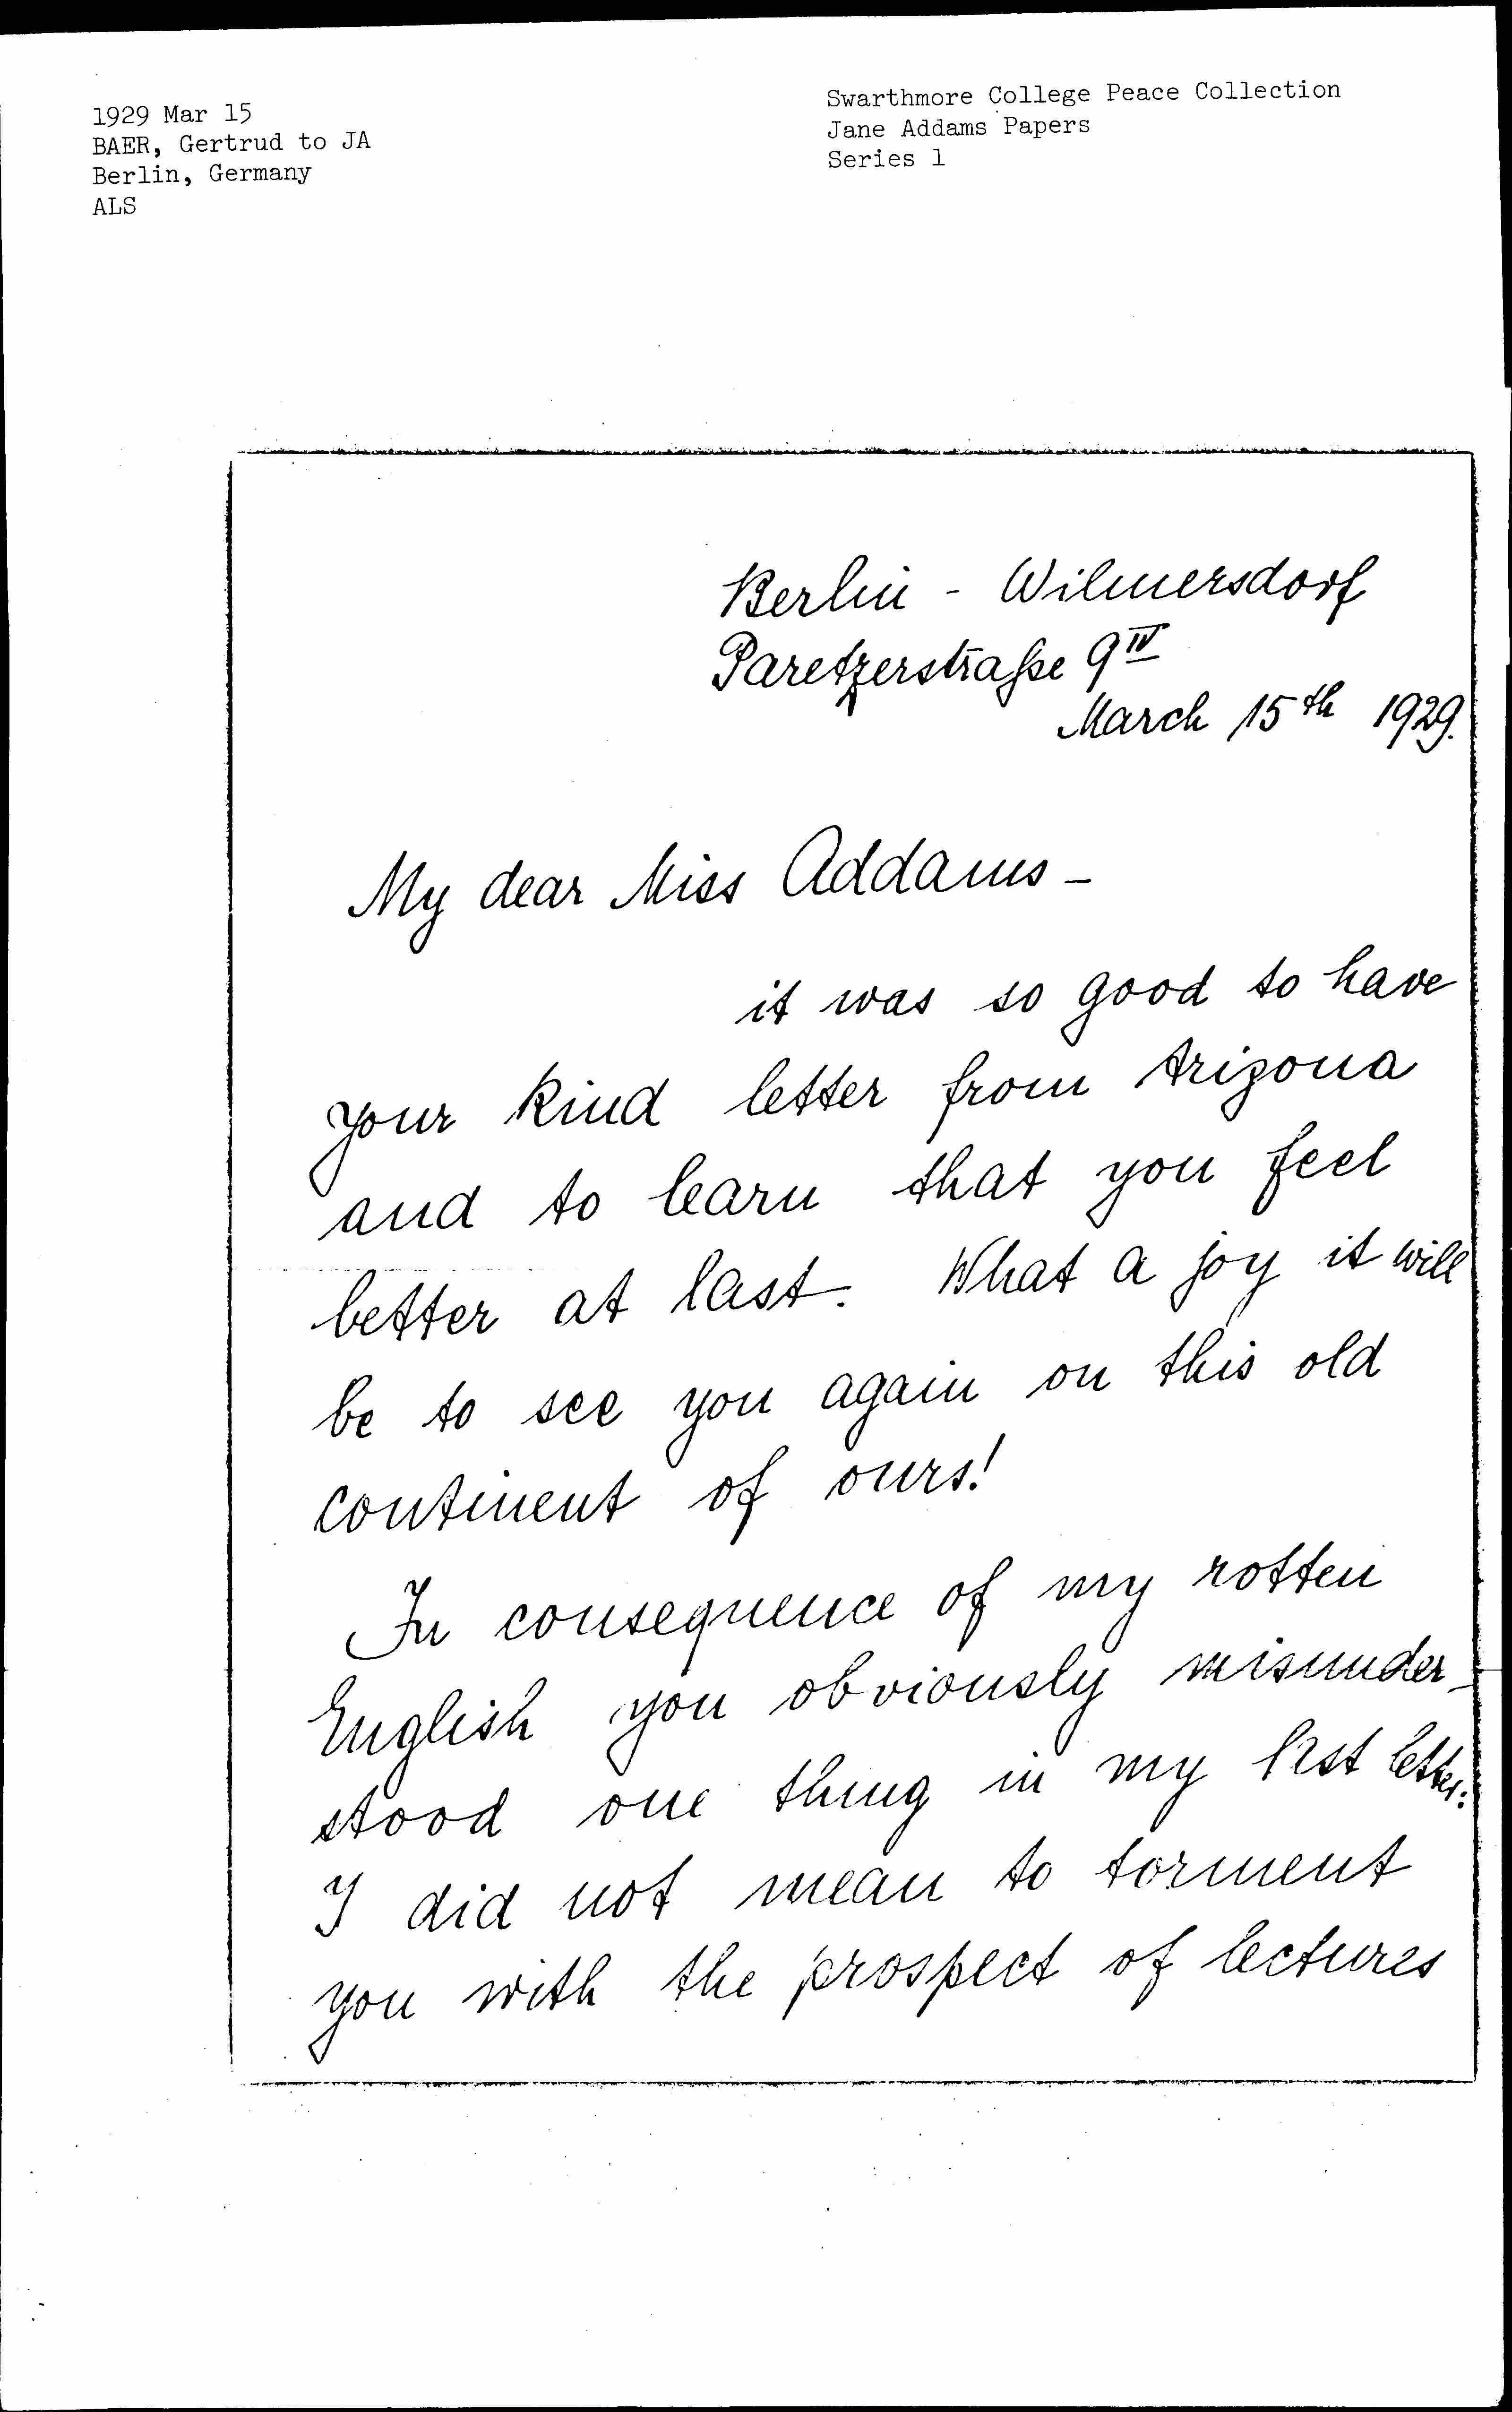 1929 Mar 15
BAER, Gertrud to JA
Berlin, Germany
ALS
Swarthmore College Peace Collection
Jane Addams Papers
Series 1
Berlin - Wilmersdorf
Paretzerstraße 9 IV
March 15th 1929.
My dear Miss Addams -
it was so good to have
your kind letter from Arizona
and to learn that you feel
better at last. What a joy it will
be to see you again on this old
continent of ours!
In consequence of my rotten
English you obviously misunder-
stood one thing in my last letter:
I did not mean to torment
you with the prospect of lectures